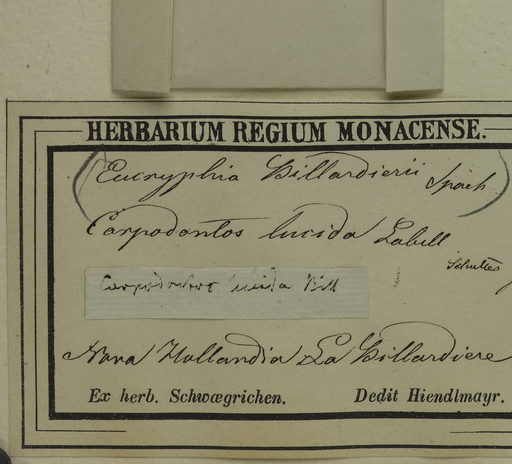 HERBARIUM REGIUM MONACENSE.
(Eucryphia Billardierii Spach)
Carpodontos lucida Labill
Schultes
Carpodontos lucida Bill
Nova Hollandia La Billardiere
Ex herb. Schwægrichen. Dedit Hiendlmayr.